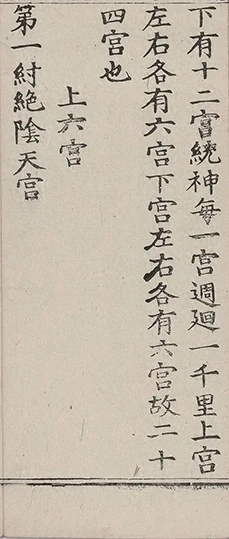 下有十二宮繞神每一宮週廻一千里上宮
左右各有六宮下宮左右各有六宮故二十
四宮也
上六宮
第一紂絶陰天宮